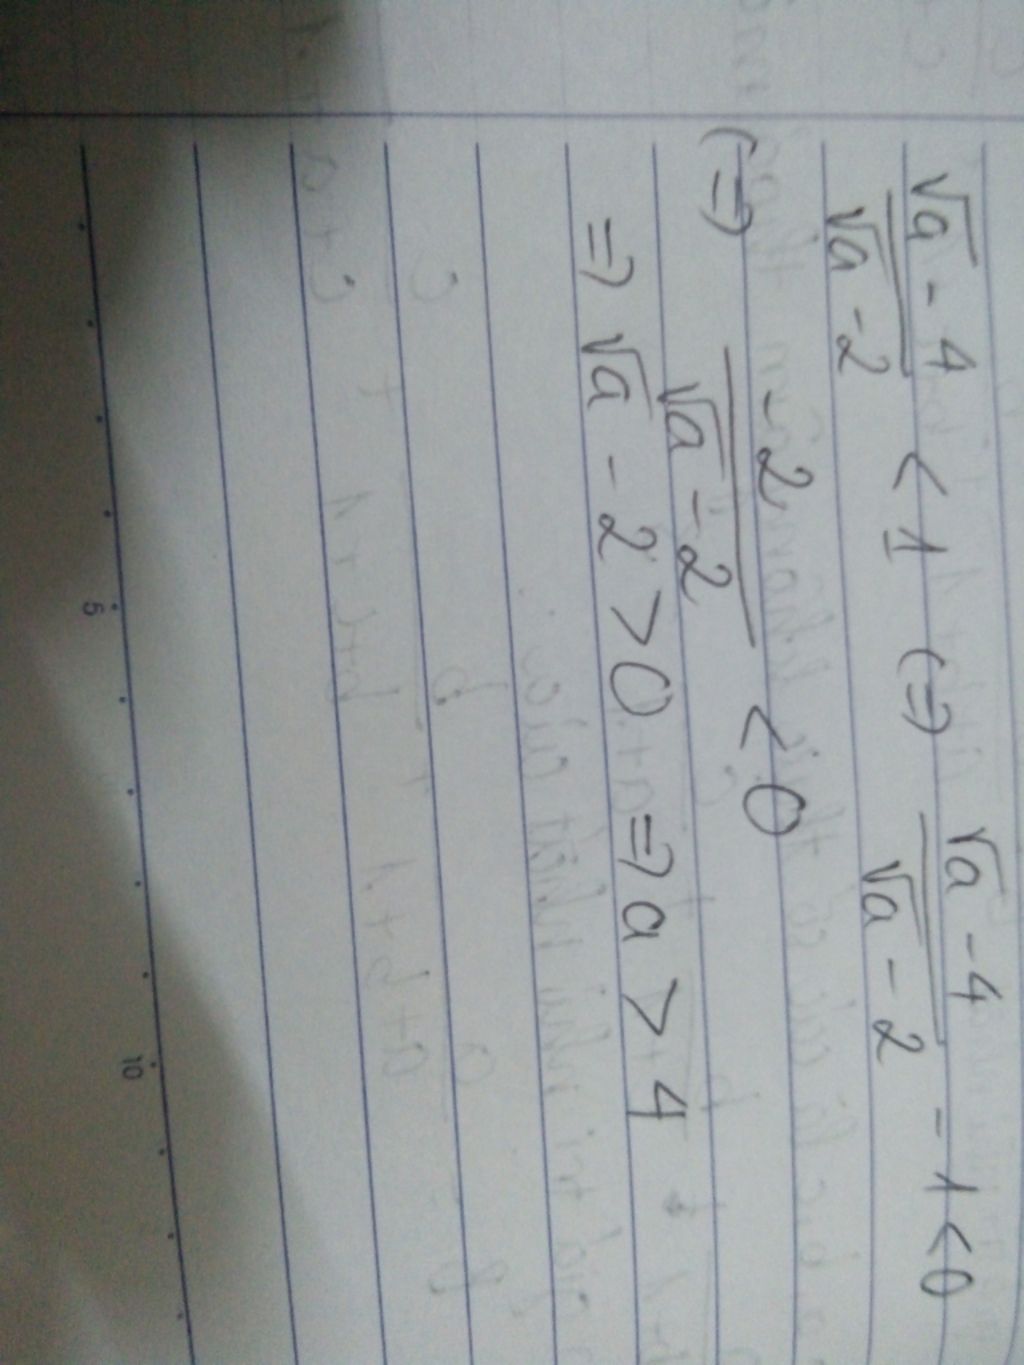 √a - 4 / √a - 2 < 1 (=) √a - 4 / √a - 2 - 1 < 0
(=) -2 / √a - 2 < 0
=) √a - 2 > 0 =) a > 4
5 10